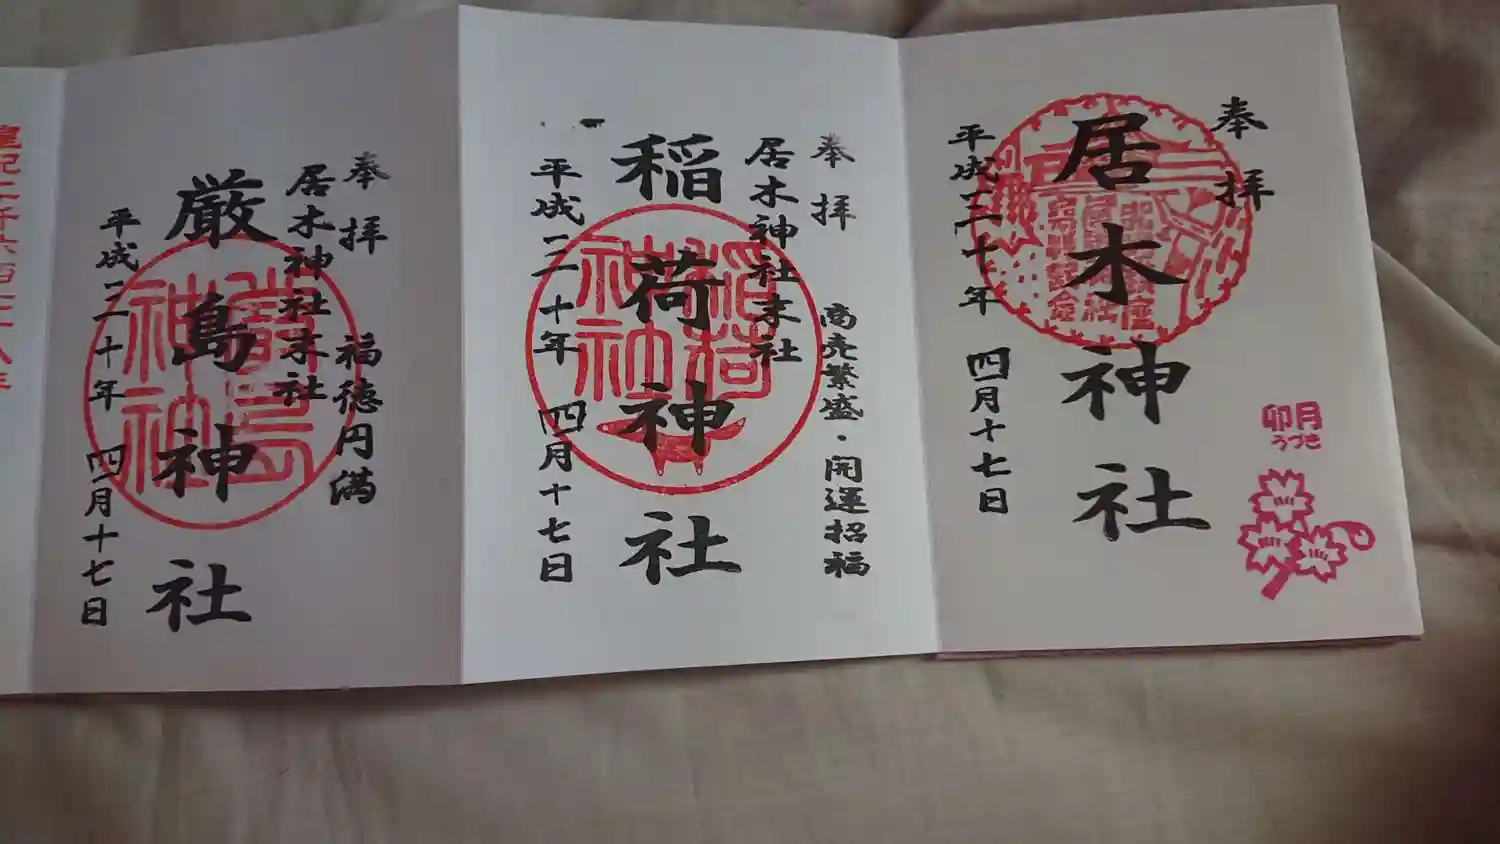 奉拝
居木神社
平成三十年 四月十七日
卯月
うづき
奉拝 商売繁盛・開運招福
居木神社末社
稲荷神社
平成三十年 四月十七日
稲荷
神社
奉拝 福徳円満
居木神社末社
厳島神社
平成三十年 四月十七日
厳島
神社